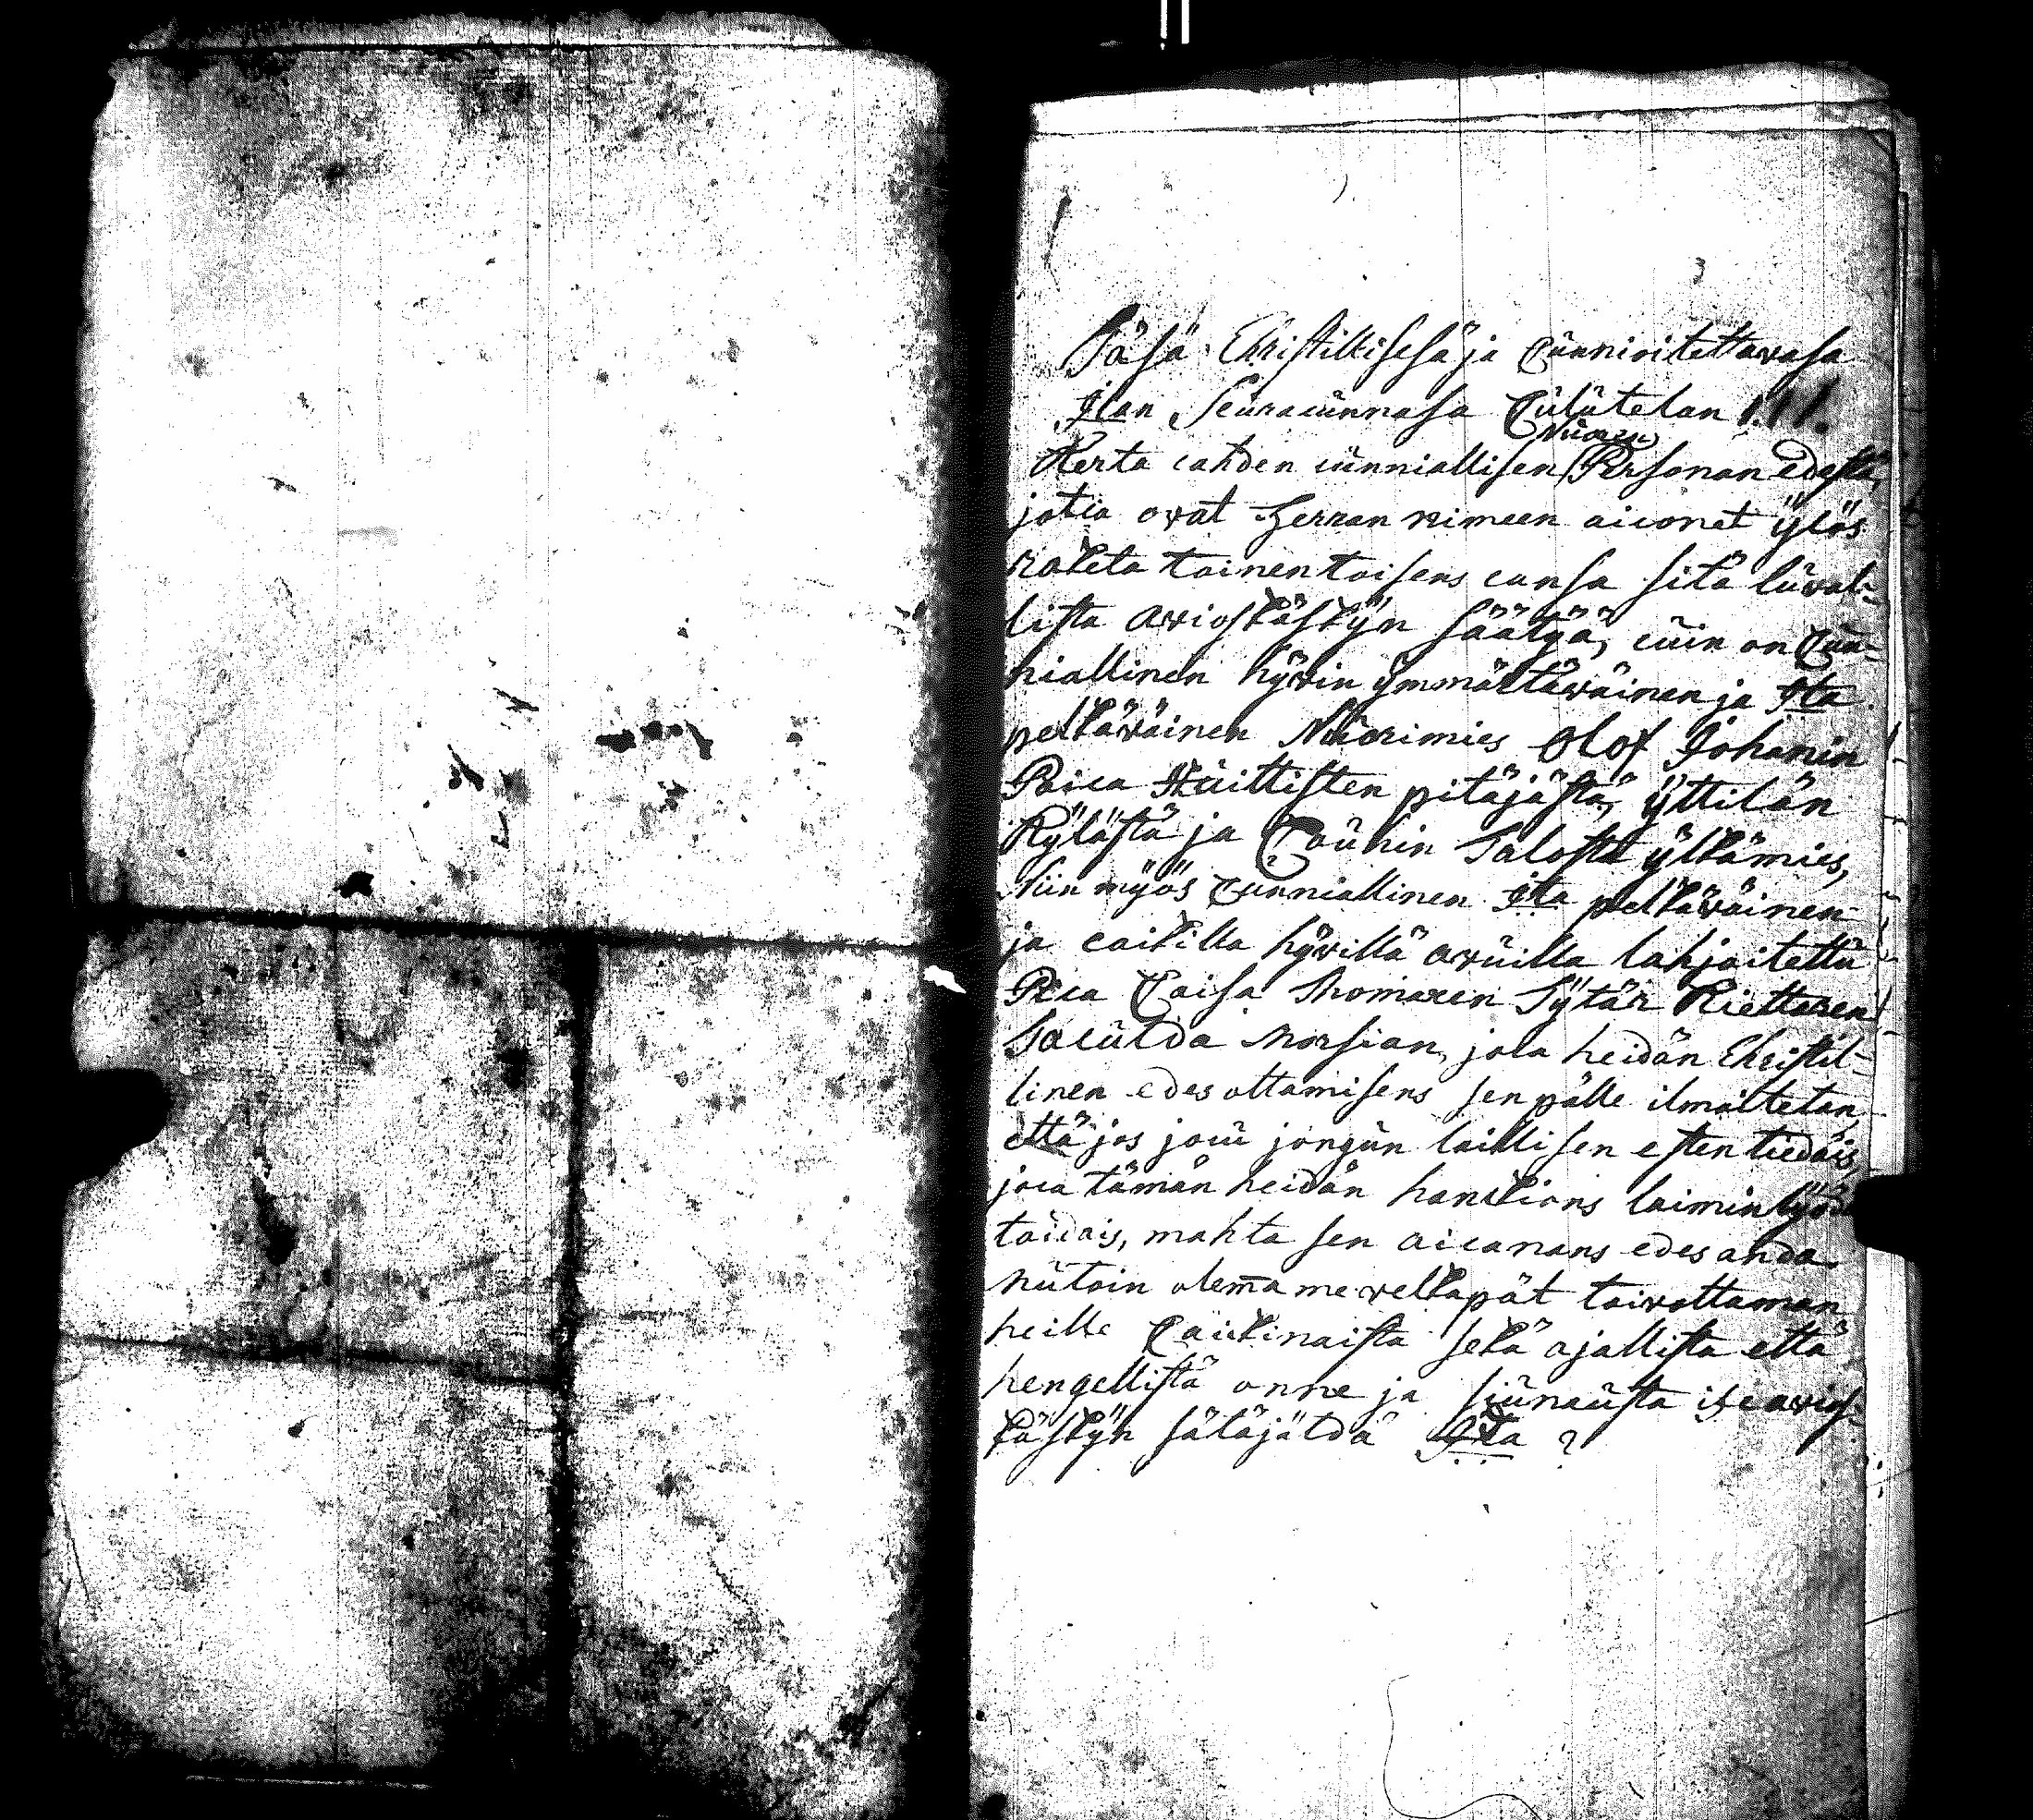 Täsä Christillisesä ja Cunnioitettavasa
Jlan Seuracunnasa Culutetan 1.11.
Kerta cahden cunniallisen Nuoren PersOnan edestä,
jotca ovat Herran nimeen aiconet ÿlös
raketa toinen toisens cansa sitä luval-
lista avioskäskÿn säätÿä, cuin on Cun-
niallinen hÿvin ÿmmärtäväinen ja Jla
pelkäväinen Nuorimies Olof Johanin
Poica Huittisten pitäjästä, ÿttilän
Kÿlästä ja Cauhin Talosta ÿlkämies,
Niin mÿös Cunniallinen Jla pelkäväinen
ja caikilla hÿvillä avuilla lahjoitettu
Pica Caisa Thomaxen Tÿtär Kiettaren
Taculda Morsian, jola heidän Christil-
linen edes ottamisens sen pälle ilmoitetan,
että jos jocu jongun laillisen esten tiedäis,
joca tämän heidän hanckions laimin lÿödä
taidais, mahta sen aicanans edes anda
mutoin olema me velkapät toivottaman
heille Caickinaista sekä ajallista että
hengellistä onne ja siunausta itse avios-
käskÿn sätäjäldä Jlla